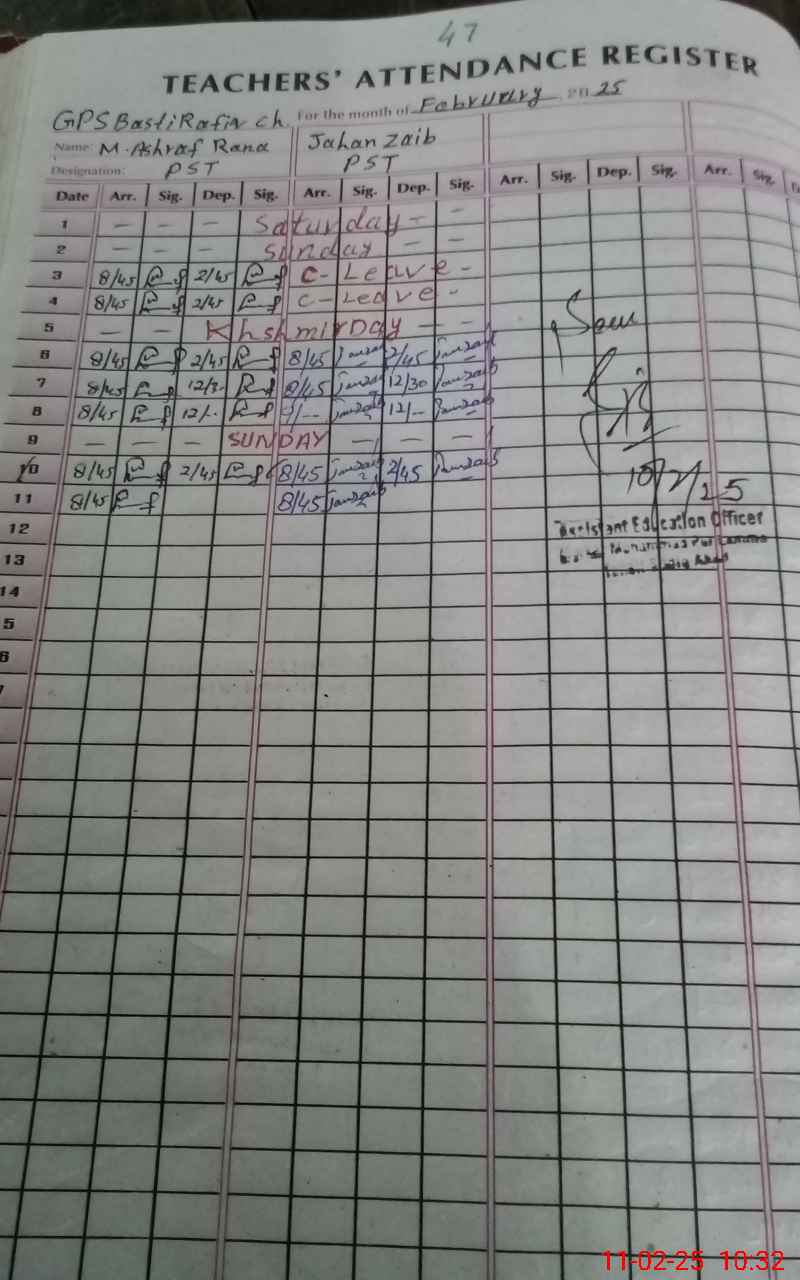 47
TEACHERS' ATTENDANCE REGISTER
GPS Basti Rafiq ch. For the month of February 2025
Name: M. Ashraf Rana Jahan Zaib
Designation: PST PST
Date Arr. Sig. Dep. Sig. Arr. Sig. Dep. Sig. Arr. Sig. Dep. Sig. Arr. Sig.
1 — — — Saturday - -
2 — — — Sunday - -
3 8/45 2/45 C- Leave -
4 8/45 2/45 C- Leave -
5 — — KhshmirDay — -
6 8/45 2/45 8/45 Janzaib 2/45 Janzaib
7 8/45 12/3- 8/45 Janzaib 12/30 Janzaib
8 8/45 12/- Janzaib 12/- Janzaib
9 — — — SUNDAY — — —
10 8/45 2/45 8/45 Janzaib 2/45 Janzaib
11 8/45 8/45 Janzaib
10/2/25
12
Assistant Education Officer
13
14
5
6
7
11-02-25 10:32